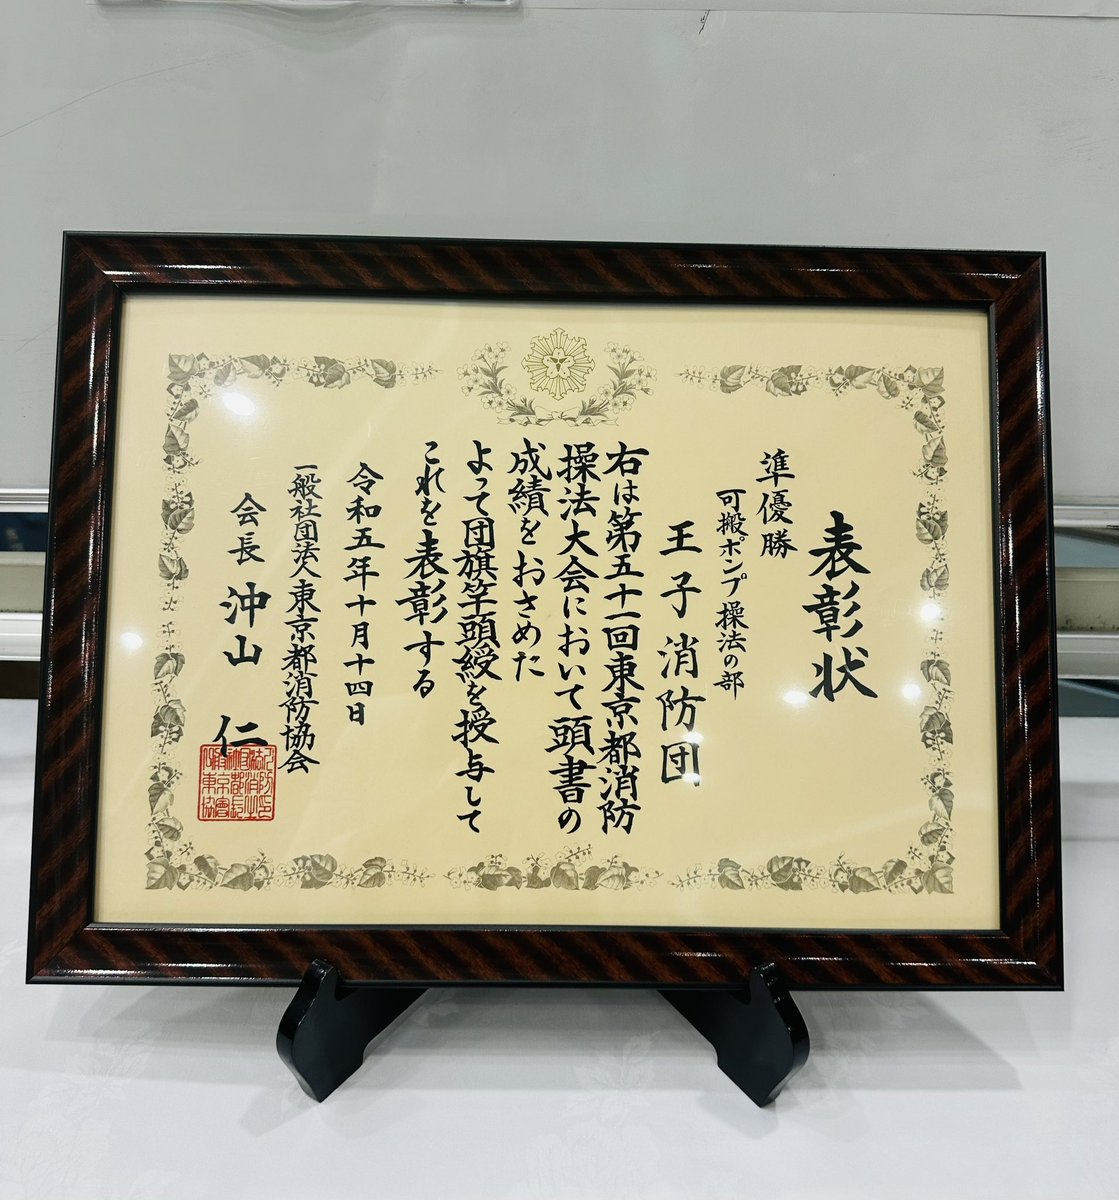 表彰状
準優勝
可搬ポンプ操法の部
王子消防団
右は第五十一回東京都消防
操法大会において頭書の
成績をおさめた
よって団旗竿頭綬を授与して
これを表彰する
令和五年十月十四日
一般社団法人東京都消防協会
会長 沖山 仁